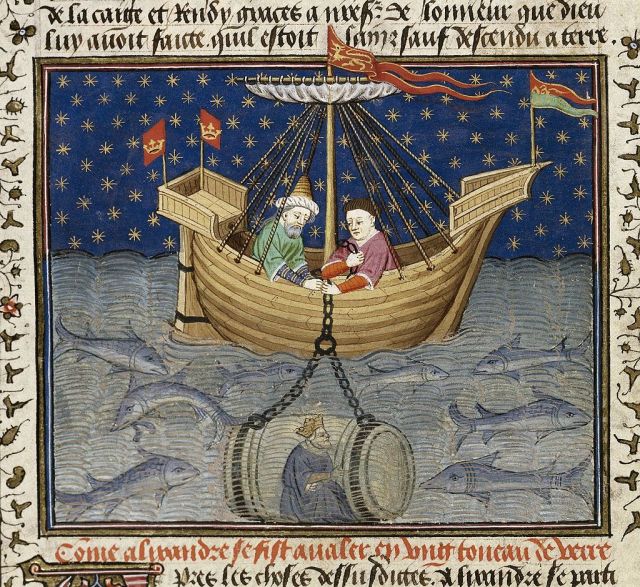 de la cage et Rendy graces a nresr de lonneur que dieu
luy auoit faicte. quil estoit sainz sauf descendu a terre.
Come alixandre se fist aualer en vng tonneau de verre
Apres les choses dessusdictes. Alixandre se parti